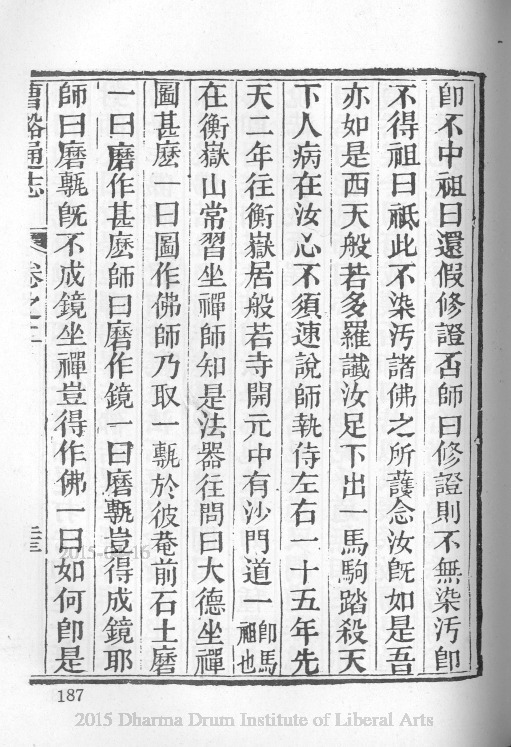 卽不中祖曰還假修證否師曰修證則不無染汚卽
不得祖曰祇此不染汚諸佛之所護念汝旣如是吾
亦如是西天般若多羅讖汝足下出一馬駒踏殺天
下人病在汝心不須速說師執侍左右一十五年先
天二年往衡嶽居般若寺開元中有沙門道一卽馬祖也
在衡嶽山常習坐禪師知是法器往問曰大德坐禪
圖甚麽一曰圖作佛師乃取一甎於彼菴前石上磨
一曰磨作甚麽師曰磨作鏡一曰磨甎豈得成鏡耶
師曰磨甎旣不成鏡坐禪豈得作佛一曰如何卽是
曹谿通志 卷之二
187
2015 Dharma Drum Institute of Liberal Arts